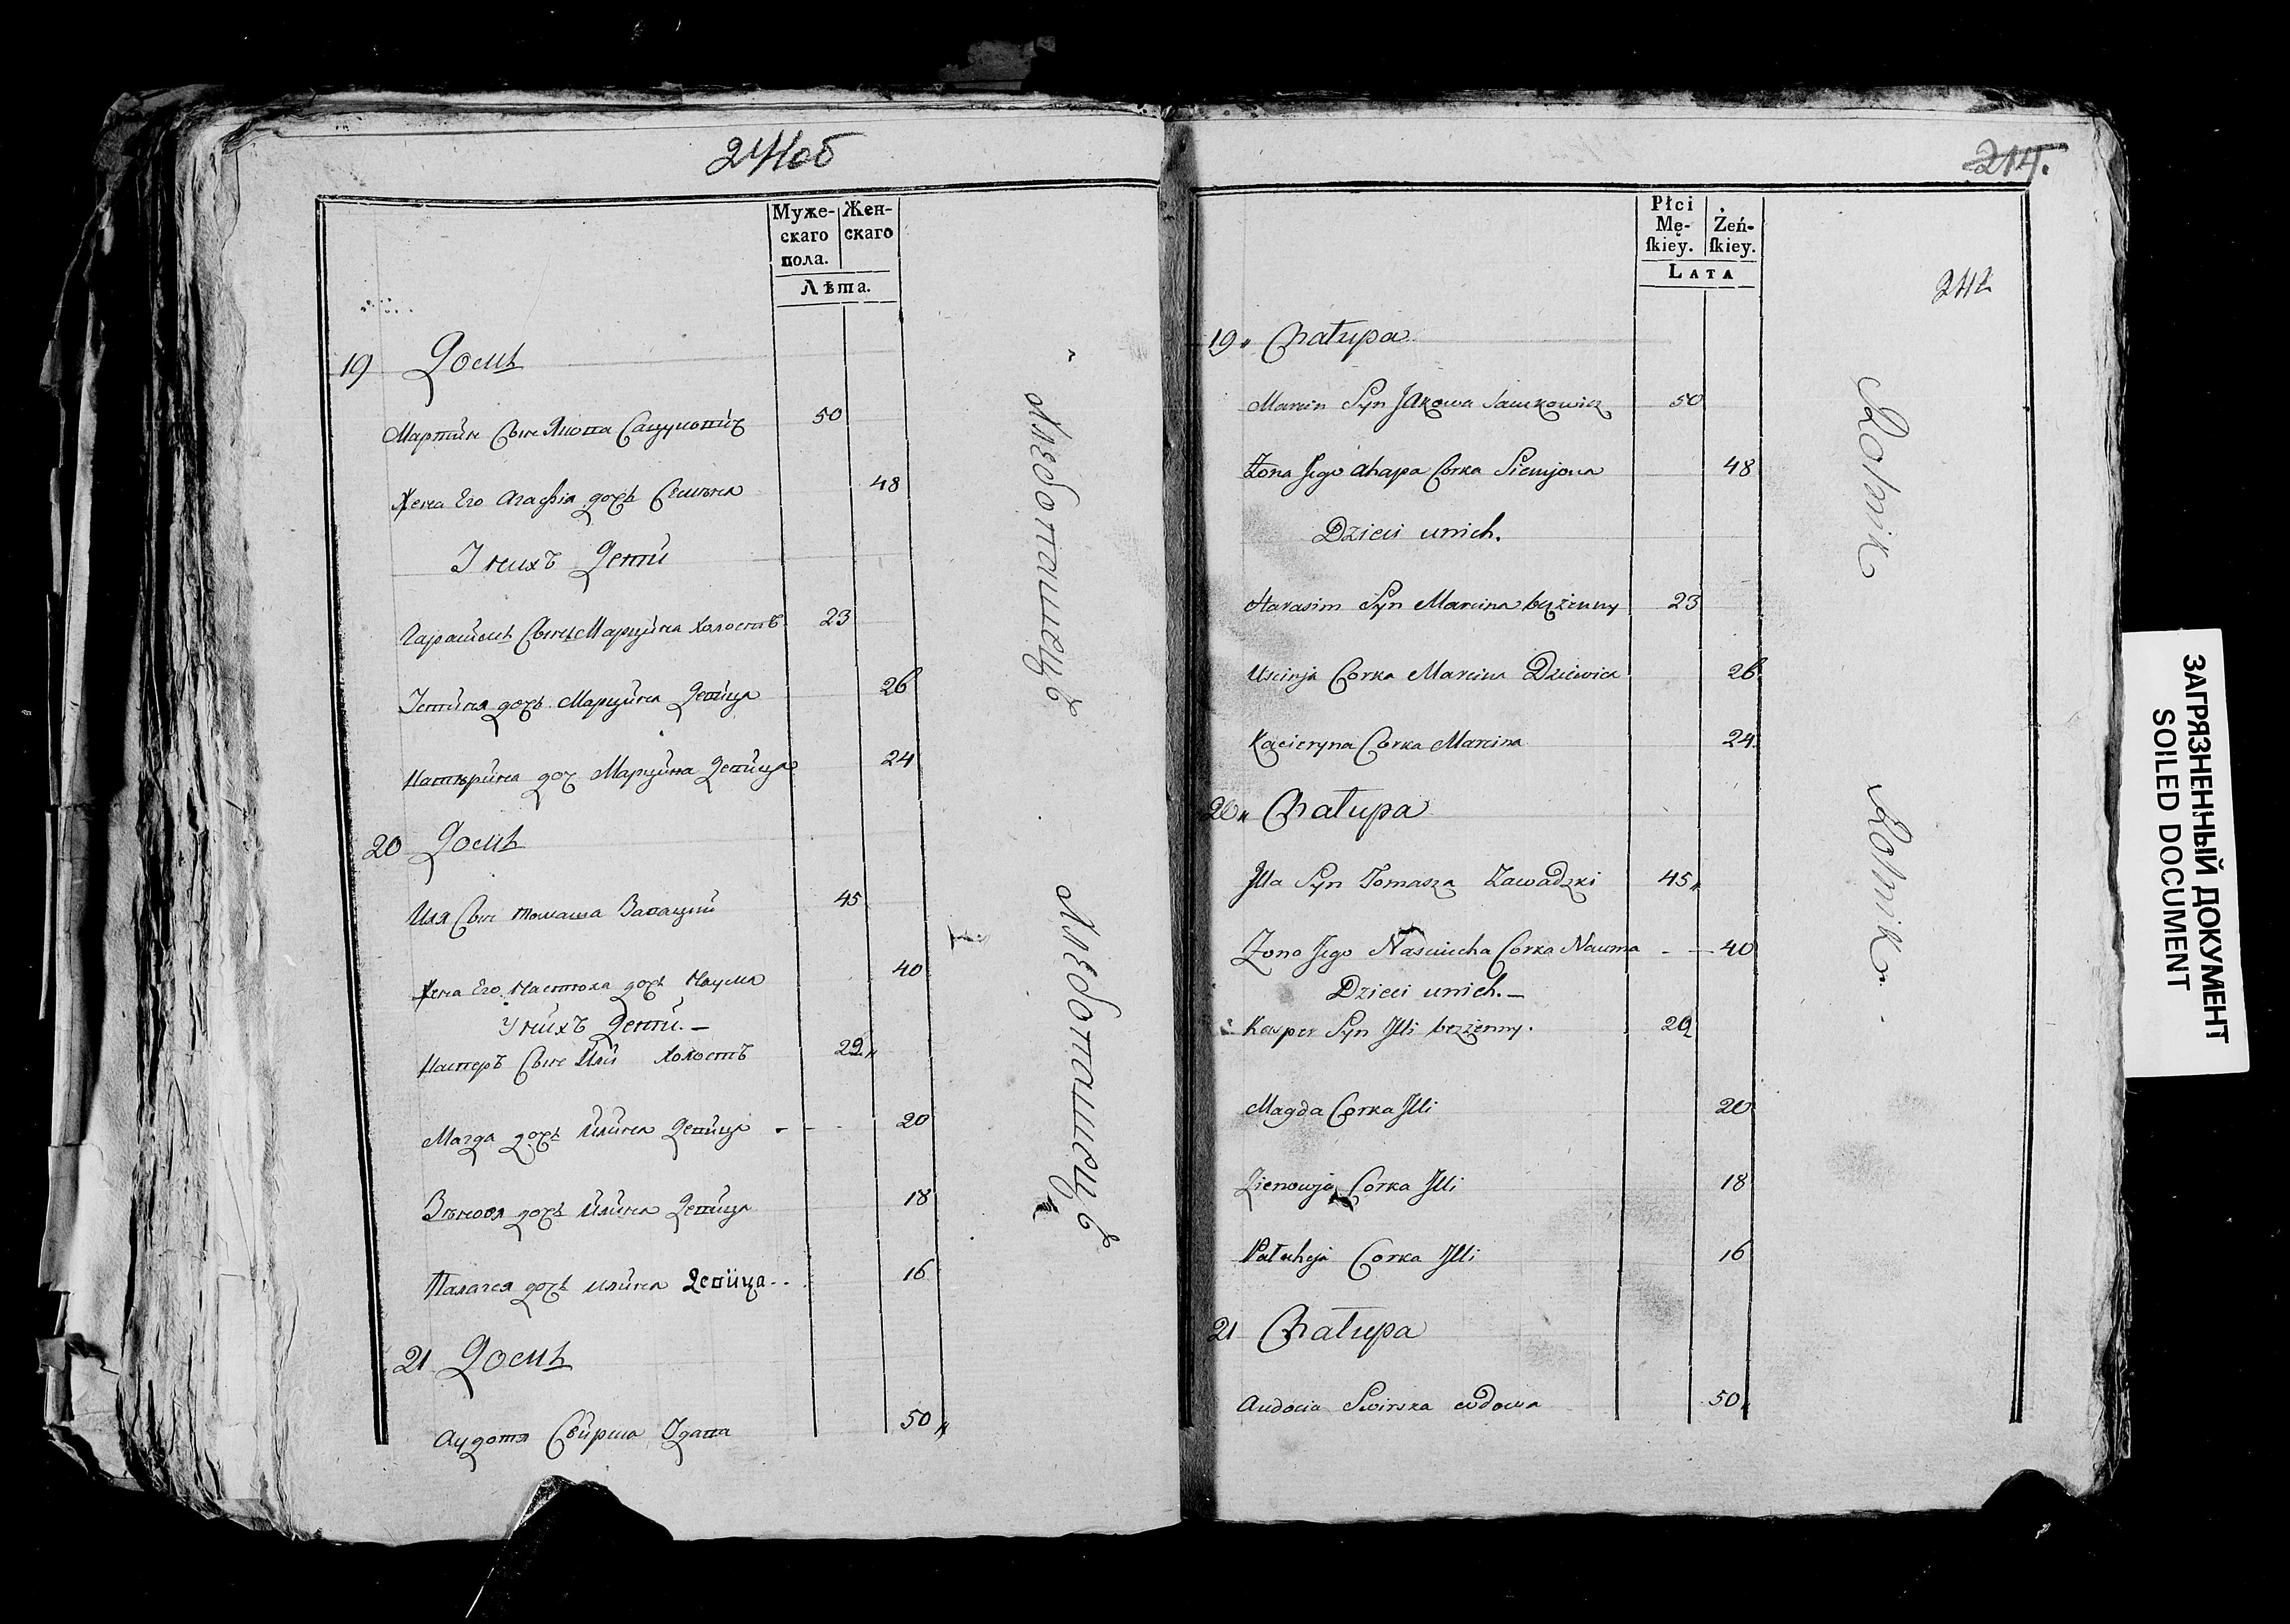 241об
Муже-
скаго
пола.
Жен-
скаго
Лѣта.
19 Домъ
Мартин Сын Якова Сацукович 50
Жена Его Агафія дочь Семѣна 48
У нихъ Дети
Гарасимъ Сынъ Марцина Холостъ 23
Устиня дочь Марцина Девица 26
Катѣрина доч Марцина Девица 24
20 Домъ
Иля Сын томаша Завацкий 45
Жена Его Настюха дочь Наума 40
У нихъ Дети. –
Касперъ Сын Или Холостъ 22
Магда дочь Илина Девица 20
Зѣновя дочь Илина Девица 18
Палагея дочь илина Девица 16
21 Домъ
Аудотя Свирска Удава 50
Хлебопашецъ
Хлебопашецъ
214.
242
Płci
Mę-
ſkiey.
Żeń-
ſkiey.
LATA
19 Chałupa
Marcin Syn Jakowa Sawkowicz 50
Zona Jego Ahapa Corka Siemjona 48
Dzieci unich.
Harasim Syn Marcina bezżenny 23
Uscinja Corka Marcina Dziewica 26
Kacieryna Corka Marcina 24
20 Chałupa
Jlla Syn Tomasza Zawadzki 45
Zona Jego Nasciucha Corka Nauma - - 40
Dzieci unich. –
Kasper Syn Jlli bezżenny. 22
Magda Corka Jlli 20
Zienowja Corka Jlli 18
Pałaheja Corka Jlli 16
21 Chałupa
Audocia Swirska wdowa 50
Rolnik
Rolnik
ЗАГРЯЗНЕННЫЙ ДОКУМЕНТ
SOILED DOCUMENT